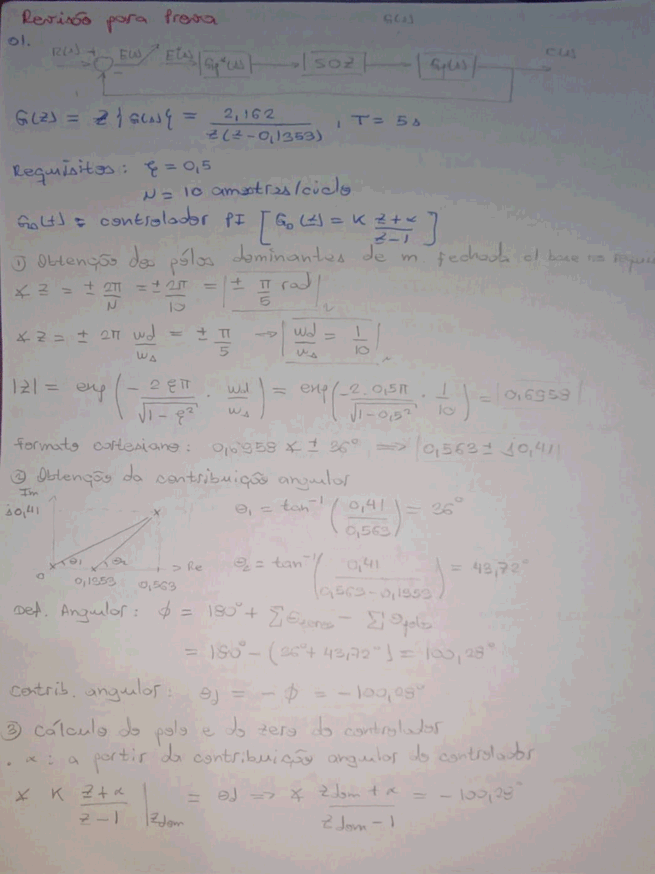 Revisão para Prova
G(s)
01. R(s) + - E(s) E*(s) GD*(s) SOZ Gp(s) C(s)
G(z) = Z{G(s)} = 2,162 / z(z-0,1353) , T = 5s
Requisitos: ξ = 0,5
N = 10 amostras/ciclo
GD(z) = controlador PI [GD(z) = K z+α / z-1]
① Obtenção dos pólos dominantes de m fechada c/ base nos requis
∡ z = ± 2π/N = ± 2π/10 = |± π/5 rad|
∡ z = ± 2π wd/ws = ± π/5 → |wd/ws = 1/10|
|z| = exp(- 2ξπ/√1-ξ² · wd/ws) = exp(- 2.0,5π/√1-0,5² · 1/10) = |0,6958|
Formato cartesiano: 0,6958 ∡ ± 36° ⇒ |0,563 ± j0,41|
② Obtenção da contribuição angular
Im
j0,41
θ1 = tan⁻¹(0,41/0,563) = 36°
θ1 θ2 → Re
0 0,1353 0,563
θ2 = tan⁻¹(0,41/0,563-0,1353) = 43,72°
Def. Angular: φ = 180° + Σθzeros - Σθpolo
= 180° - (36° + 43,72°) = 100,28°
Contrib. angular: θd = - φ = -100,28°
③ Cálculo do polo e do zero do controlador
. α: a partir da contribuição angular do controlador
∡ K z+α / z-1 |zdom = θd ⇒ ∡ zdom + α / zdom - 1 = -100,28°